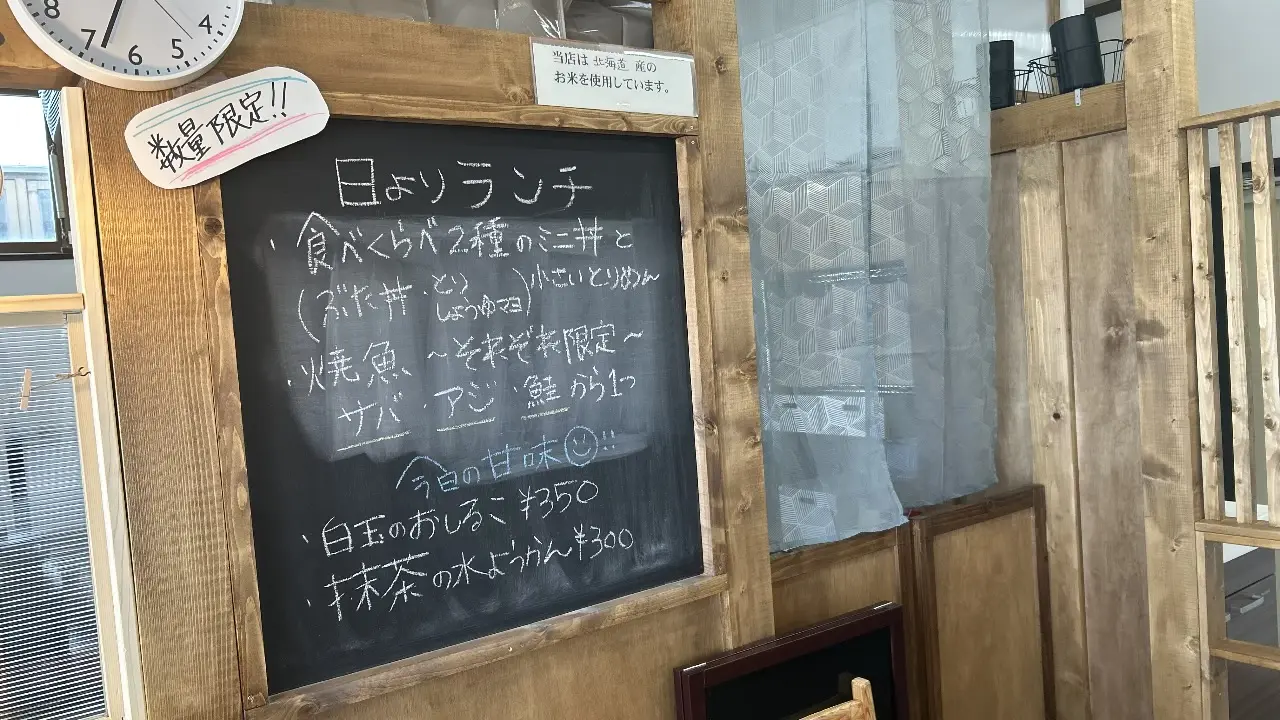 8 7 6 5 4
当店は 北海道 産の
お米を使用しています。
数量限定!!
日よりランチ
・食べくらべ2種のミニ丼と
(ぶた丼・とりしょうゆマヨ)小さいとりめん
・焼魚 〜それぞれ限定〜
サバ・アジ・鮭から1つ
今日の甘味!!
・白玉のおしるこ ¥350
・抹茶の水ようかん ¥300